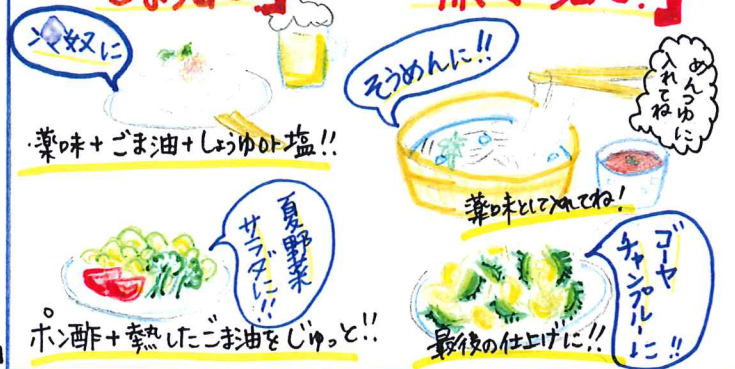 冷奴に
・薬味+ごま油+しょうゆor塩!!
夏野菜
サラダに!!
ポン酢+熱したごま油をじゅっと!!
そうめんに!!
めんつゆに
入れてね
薬味として入れてね!
ゴーヤ
チャンプルーに!!
最後の仕上げに!!